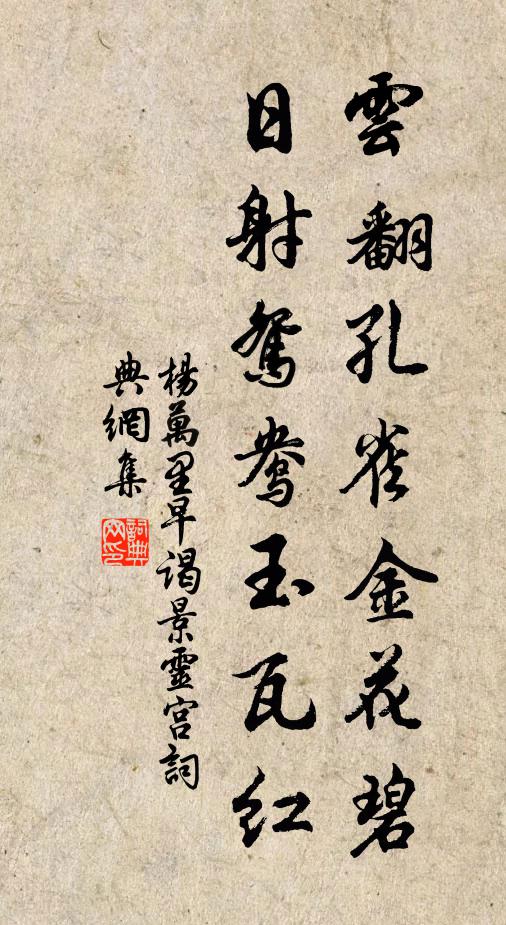 雲翻孔雀金花碧
日射鴛鴦玉瓦紅
楊萬里早謁景靈宮詞
典網集
詞典网印